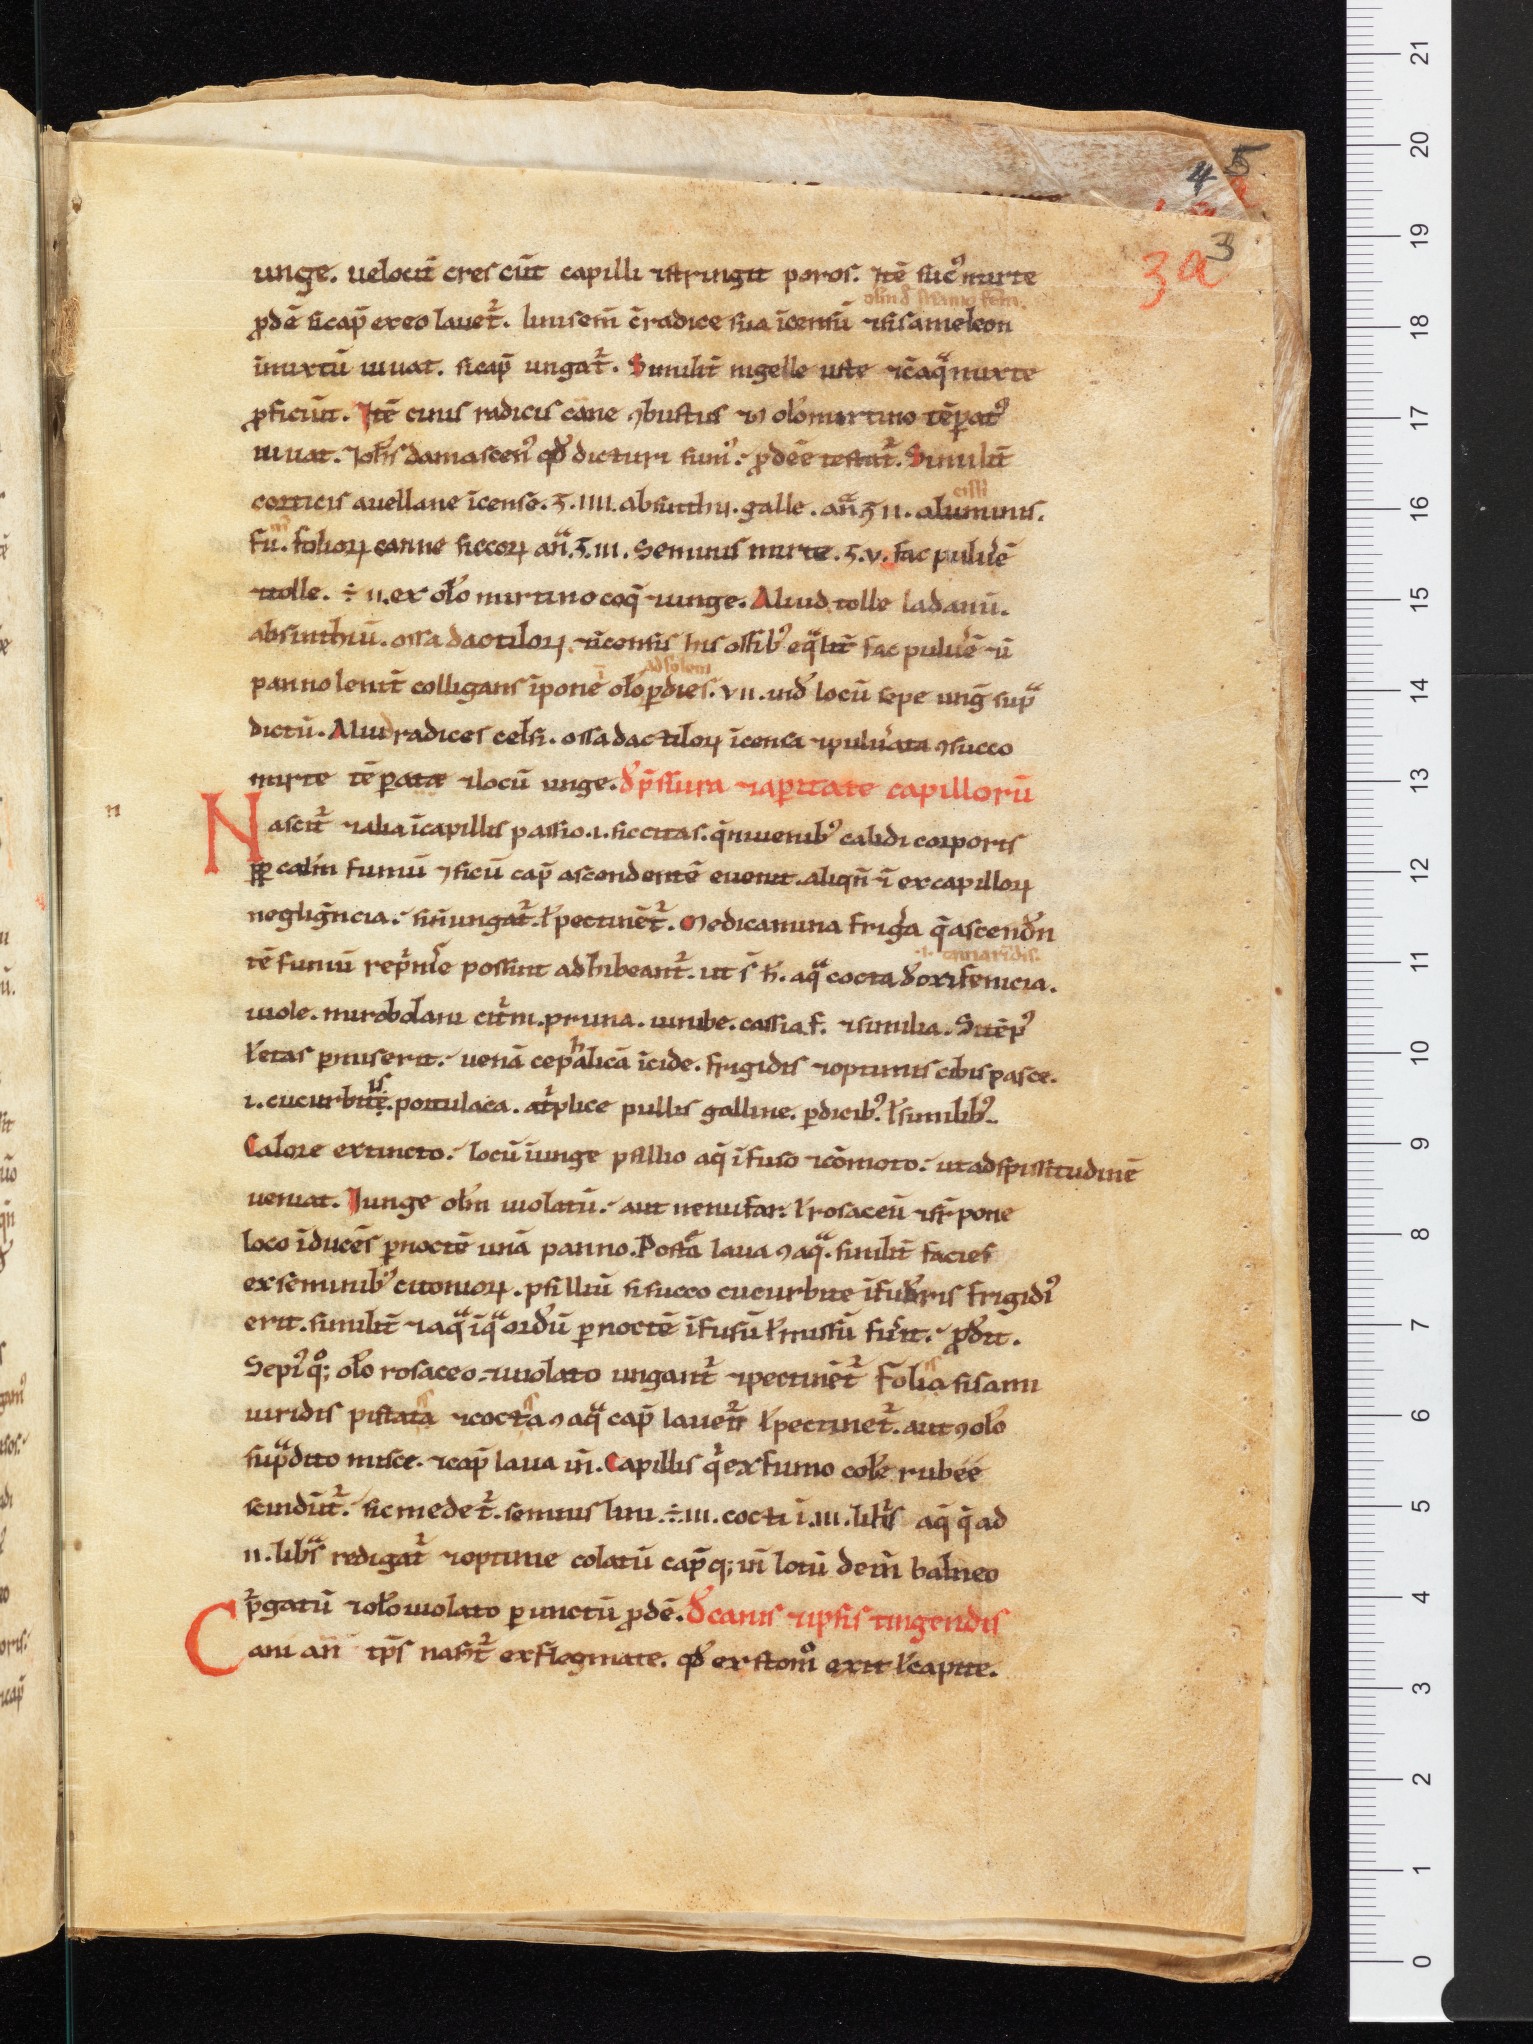 4 5
3
3a
unge. uelociũ crescũt capilli ⁊stringit poros. Itẽ sucꝰ mirte
ꝓdẽ si cap̃ ex eo lauet᷑. lini sem̃ c̃ radice sua ĩcensũ ⁊ sisameleon
ĩmixtũ iuuat. si cap̃ ungat᷑. Similit̃ nigelle uste ⁊ c̃ aqͣ mixte
ꝓficiũt. Itẽ cinis radicis cãne ꝯbustus ⁊ ꝯ oło mirtino tẽꝑatꝰ
iuuat. Iohs̃ damascenꝰ qđ dicturi sumꝰ. ꝓdẽẽ testat᷑. Similit̃
cissi
corticis auellane ĩcense. ʒ. IIII. absinthii. galle. añ ʒ II. aluminis.
fũ. folioꝝ canne siccoꝝ añ. ʒ. III. Seminis mirte. ʒ. v. fac puluẽ
⁊tolle. ÷ II. ex oło mirtino coq̃ ⁊unge. Aliud tolle ladanũ.
absinthiũ. ossa dactiloꝝ. ⁊ ĩcensis his ossibꝰ eqͣlit̃ fac puluẽ ⁊ ĩ
ad solem
panno lenit̃ colligans ĩpone oło ꝑ dies. VII. inđ locũ sepe ung̃ supͣ
dictũ. Aliud radices celsi. ossa dactiloꝝ ĩcensa ⁊puluata ꝯ succo
mirte tẽꝑatæ ⁊locũ unge. đ p̃ssura ⁊ aꝑitate capillorũ
n
Nascit᷑ ⁊alia ĩ capillis passio .i. siccitas. q̃ ĩ iuuenibꝰ calidi corporis
ꝓp̃ calim̃ fumũ ⁊ siccũ cap̃ ascendentẽ euenit. aliqñ ⁊̃ ex capilloꝝ
neglig̃ncia. si ñ ungat᷑. ł pectinẽt᷑. Medicamina frigđa q̃ ascendn̄
.i. tamarĩdis.
tẽ fumũ rep̃mẽ possint adhibeant᷑. ut s̃ h̃. aqͣ cocta đ oxifenicia.
uiole. mirobolani cit᷑ni. pruna. iuiube. cassia f. ⁊ similia. Si tẽpꝰ
ł etas ꝑmiserit. uenã cephalicã ĩcide. frigidis ⁊optimis cibis pasce.
.i. cucurbitis. portulaca. at᷑plice pullis galline. ꝑdicibꝰ. ł similibꝰ.
Calore extincto. locũ ĩunge psillio aq̃ ĩfuso ⁊cõmoto. ut ad spissitudinẽ
ueniat. Iunge olm̃ uiolatũ. aut nenufar. ł rosaceũ ⁊sr̃pone
loco ĩducẽs ꝑ noctẽ unã panno. Postͣ laua ꝯ aqͣ. similit̃ facies
ex seminibꝰ citonioꝝ. psilliũ si succo cucurbite ĩfuđris frigidꝰ
erit. similit̃ ⁊ aqͣ ĩ qͣ ordũ ꝑ noctẽ ĩfusũ ł mistũ fuit. ꝓdit.
Sepiꝰqꝫ oło rosaceo. ⁊uiolato ungant᷑ ⁊pectinẽt᷑ Folia sisami
uiridis pistata ⁊cocta ꝯ aq̃ cap̃ lauet᷑ ł pectinet᷑. aut ꝯ oło
supͣdicto misce. ⁊cap̃ laua iñ. Capillis qͥ ex fumo colẽ rubeẽ
scindũt᷑. sic medet᷑. seminis lini ÷. III. cocti ĩ. III. lib᷑s aq̃ q̃ ad
II. libͣs redigat᷑ ⁊optime colatũ cap̃qꝫ iñ lotũ dem̃ balneo
p᷑gatũ ⁊ oło uiolato ꝑ unctũ ꝓdẽ. đ canis ⁊ ipsis tingendis
Cani añ tp̃s nasct᷑ ex flegmate. qđ ex stomͦ exit ł capite.